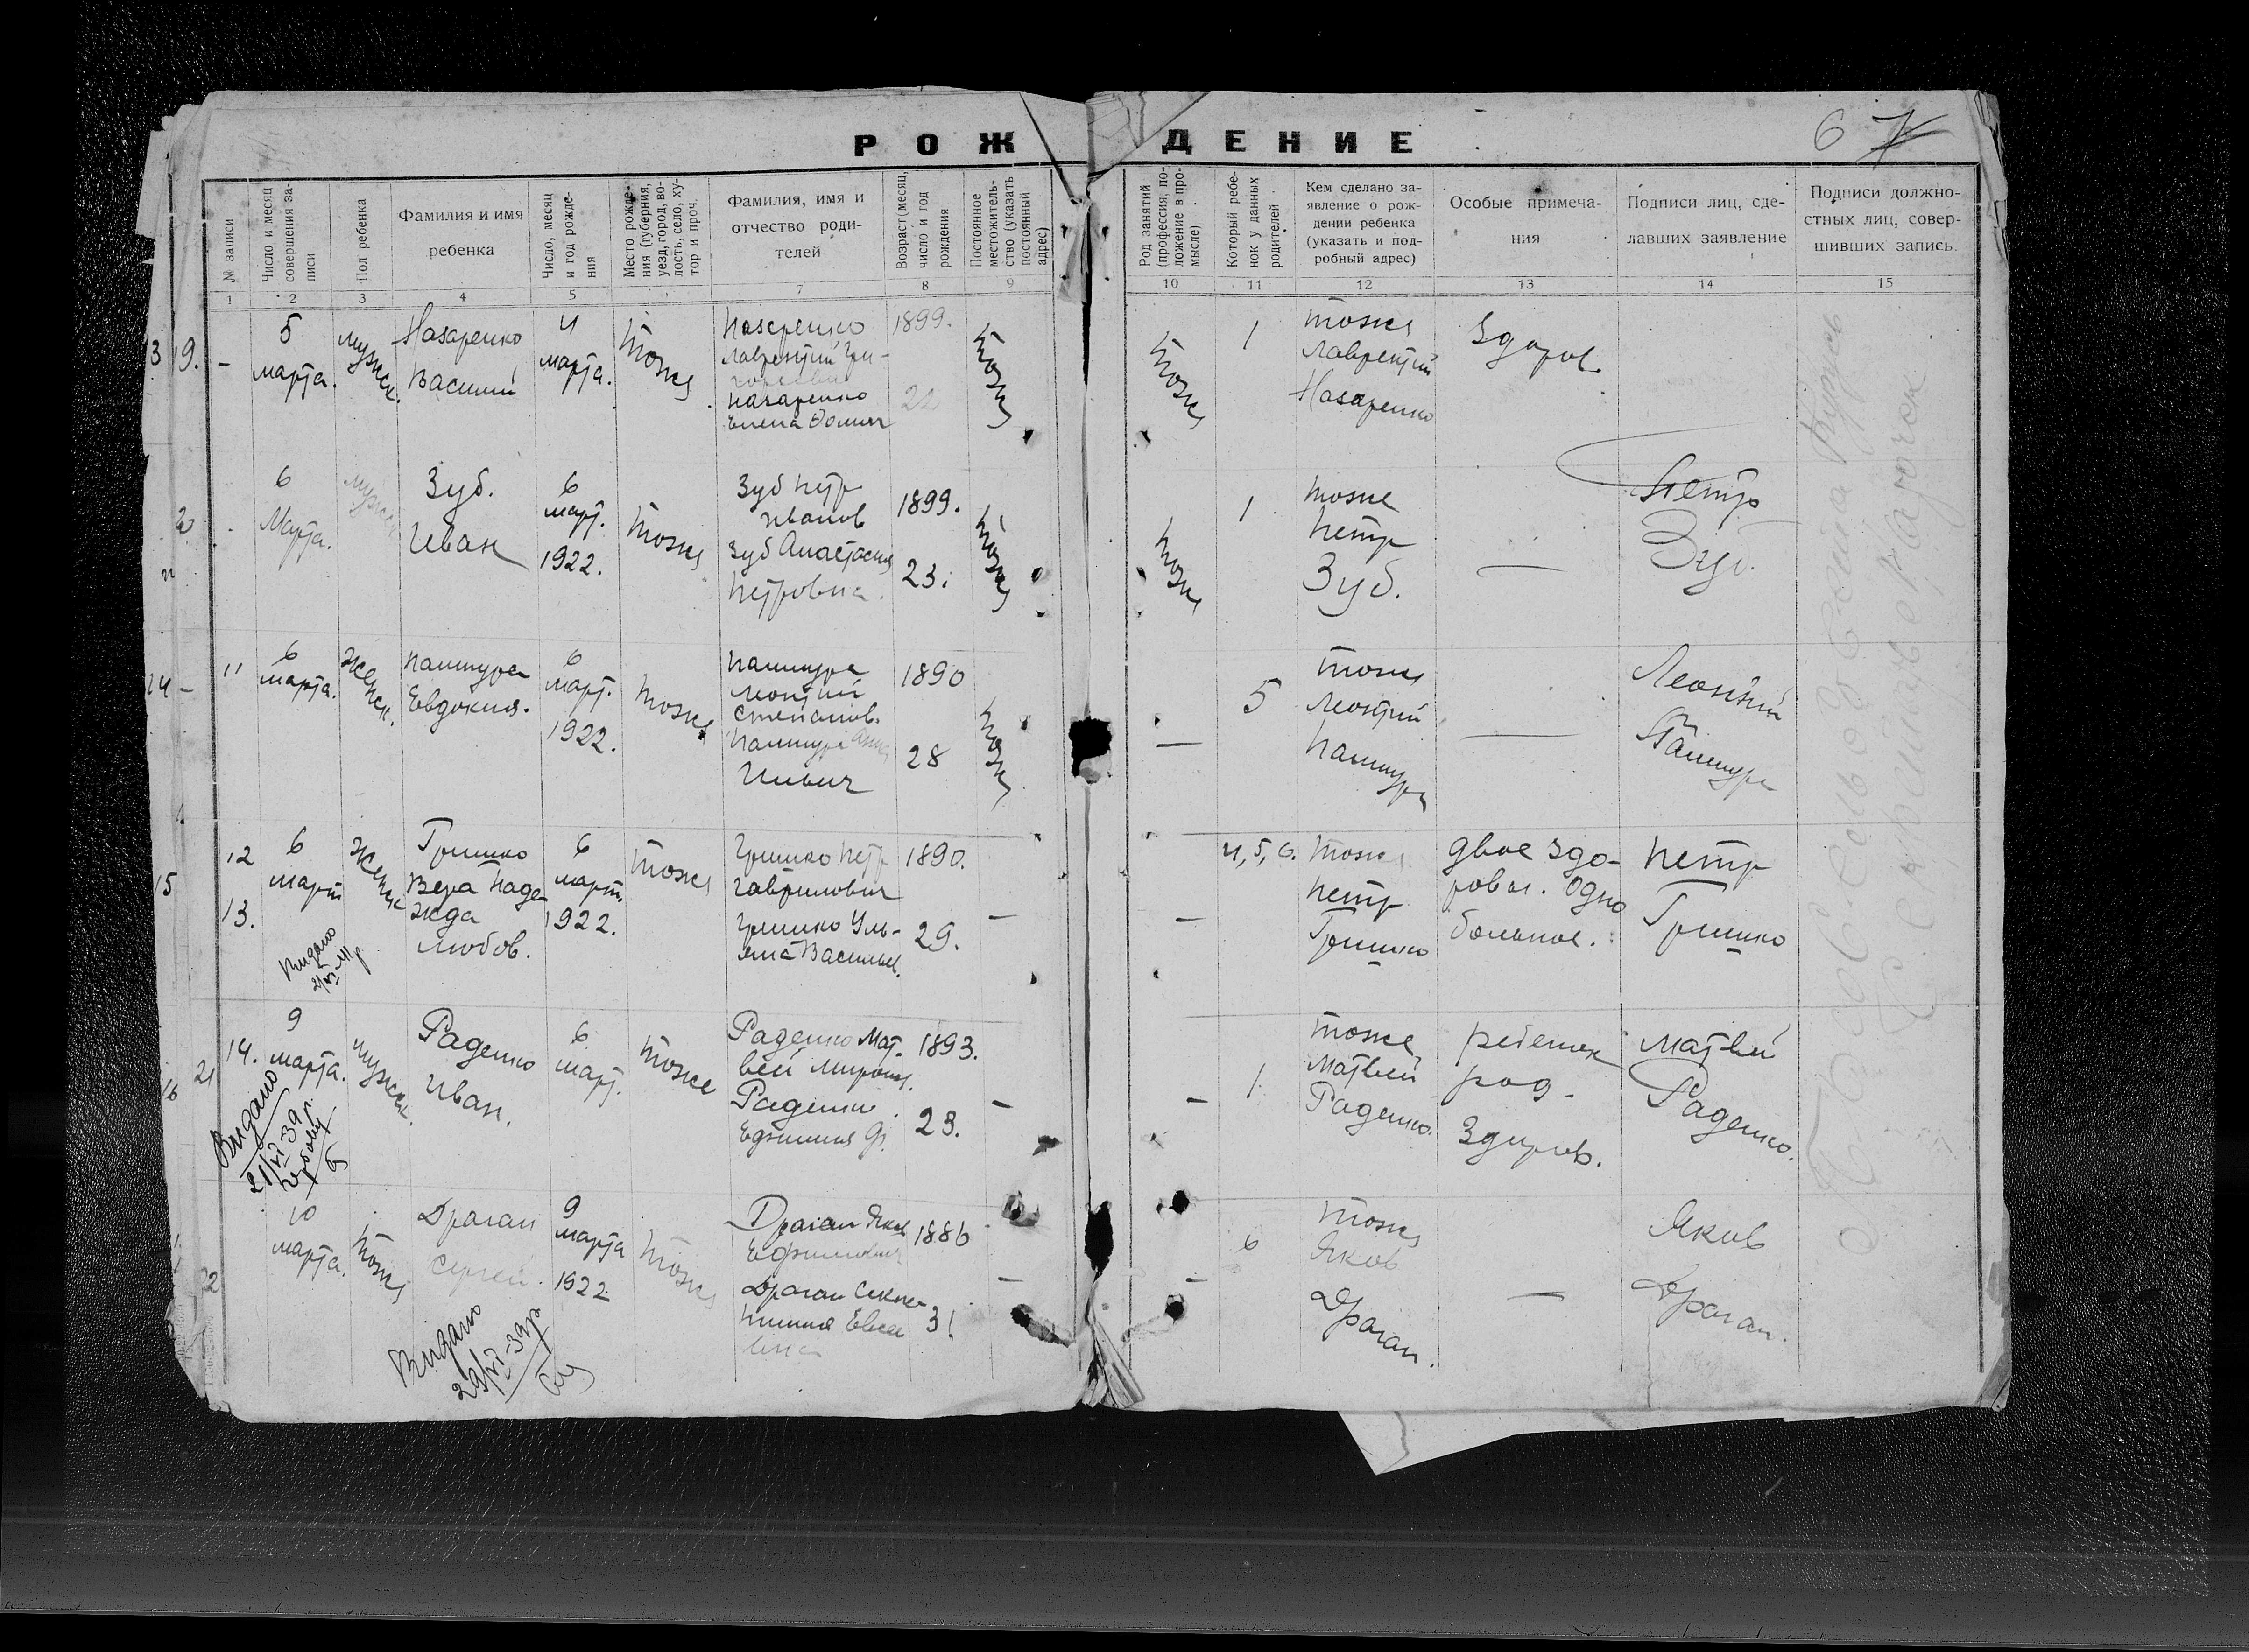 РОЖДЕНИЕ
6 7
№ записи
Число и месяц совершения за-писи
Пол ребенка
Фамилия и имя
ребенка
Число, месяц и год рожде-ния
Место рожде-ния (губерния, уезд, город, во-лость, село, ху-тор и проч.
Фамилия, имя и
отчество роди-
телей
Возраст (месяц, число и год рождения
Постоянное местожитель-ство (указать постоянный адрес)
Род занятий (профессия, по-ложение в про-мысле)
Который ребе-нок у данных родителей
Кем сделано за-
явление о рож-
дении ребенка
(указать и под-
робный адрес)
Особые примеча-
ния
Подписи лиц, сде-
лавших заявление
Подписи должно-
стных лиц, совер-
шивших запись.
1 2 3 4 5 7 8 9 10 11 12 13 14 15
13 19. –
5
марта.
мужск.
Назаренко
Василий
4
марта.
тоже
Назаренко
Лаврентий Гри-
горьевич
Назаренко
Елена
1899.
22
тоже
тоже
1
тоже
Лаврентий
Назаренко
Здоров.
6
Марта.
мужск
Зуб.
Иван
6
март.
1922.
тоже
Зуб Петр
Иванов
Зуб Анастасия
Петровна.
1899.
23.
тоже
тоже
1
тоже
Петр
Зуб.
—
Петр
Зуб.
14 –
11
6
марта.
женск.
Пашура
Евдокия.
6
март.
1922.
тоже
Пашура
Леонтий
Степанов.
Пашура Анна
1890
28
тоже
—
5
тоже
Леонтий
Пашура
—
Леонтий
Пашура
15
12
13.
6
март
женск
Гришко
Вера Наде-
жда
Любов.
6
март.
1922.
тоже
Гришко Петр
Гаврилович
Гришко Уль-
яна Васильев.
1890.
29.
—
—
4, 5, 6.
тоже
Петр
Гришко
двое здо-
ровы. Одно
больное.
Петр
Гришко
Видано
16 21
14.
9
марта.
мужск.
Раденко
Иван.
6
март.
тоже
Раденко Мат-
вей Миронов.
Раденко
Ефимия Ф.
1893.
23.
–
–
1.
тоже
Матвей
Раденко.
ребенок
род.
Здоров.
Матвей
Раденко.
Видано
21/VI-39 р.
22
10
марта.
тоже
Драган
Сергей.
9
марта
1922
тоже
Драган Яков
Ефимович
Драган
1886
31
–
–
6
тоже
Яков
Драган.
—
Яков
Драган.
Видано
29/VI-39 р